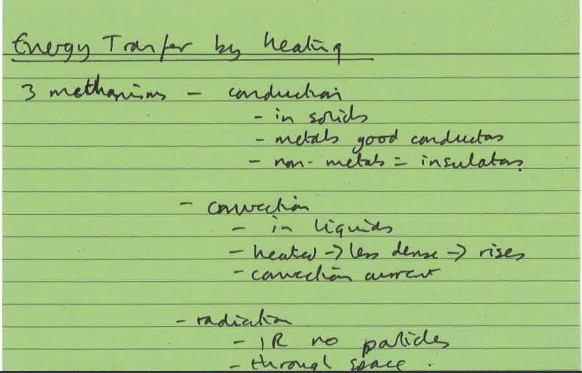 Energy Tranfer by heating
3 methanisms - conduction
- in solids
- metals good conductors
- non-metals = insulators
- convection
- in liquids
- heated -> less dense -> rises
- convection current
- radiation
- IR no particles
- through space.